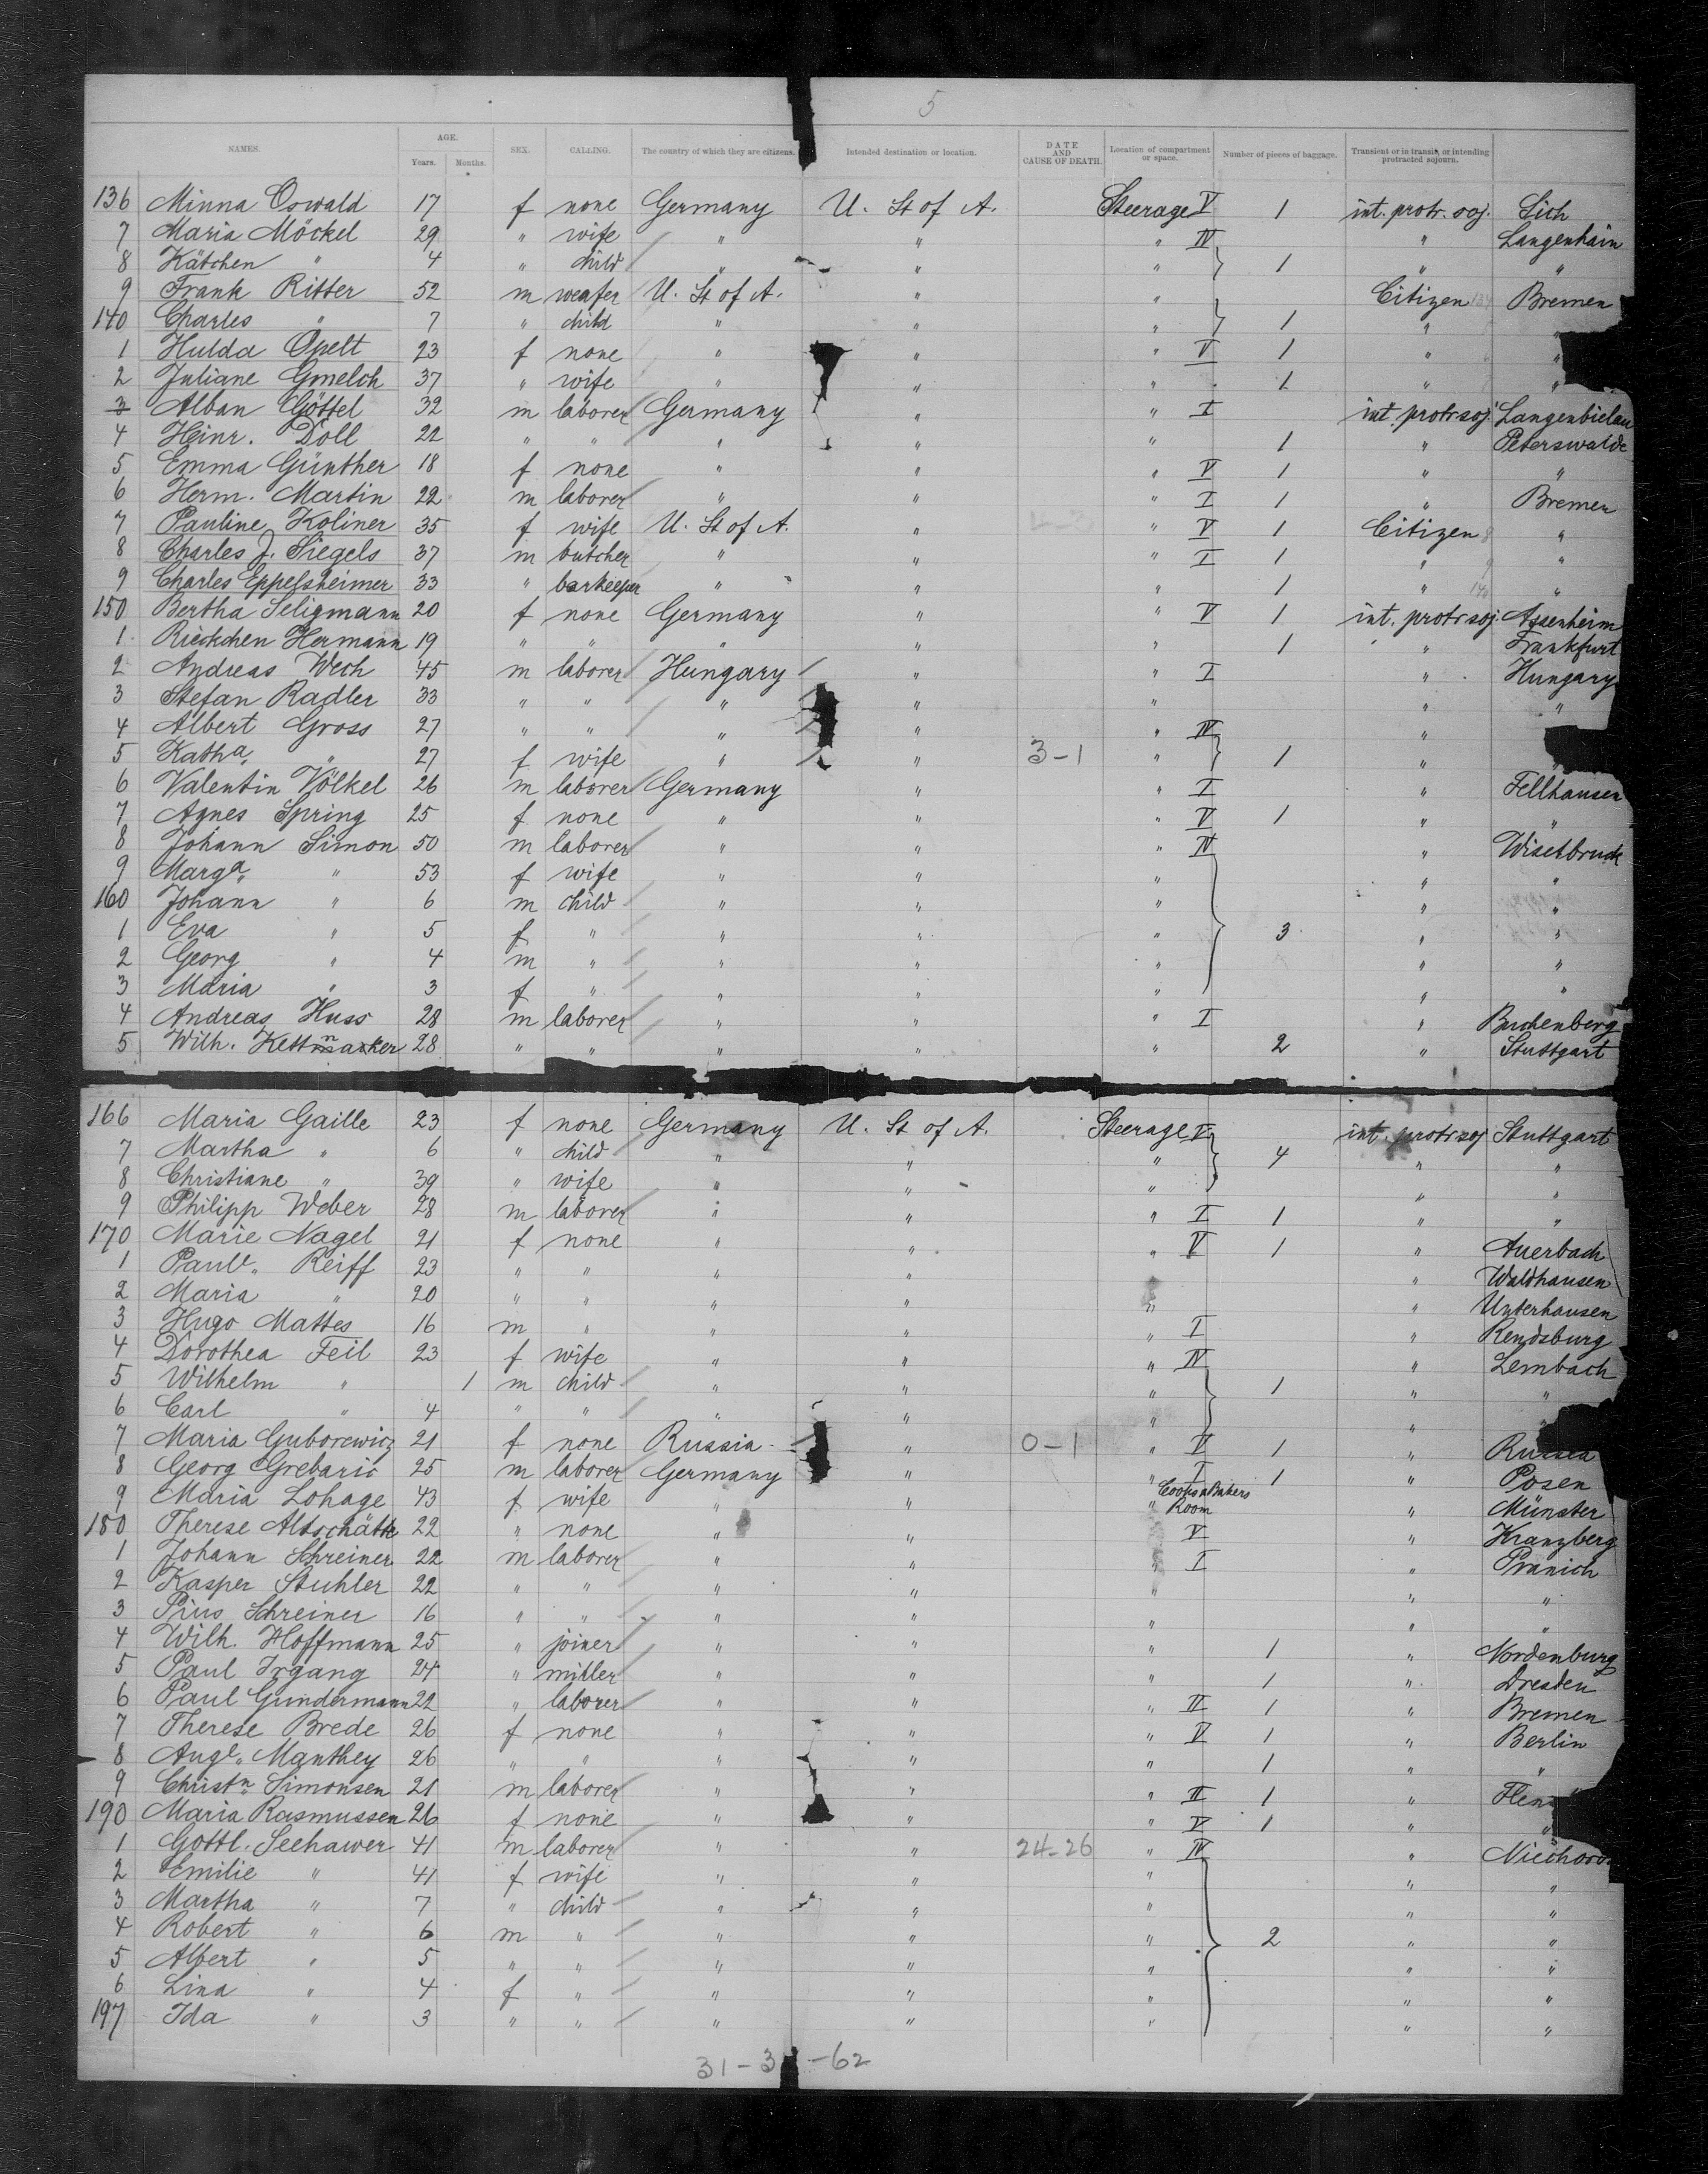 5
NAMES. AGE. Years. Months. SEX. CALLING. The country of which they are citizens. Intended destination or location. DATE AND CAUSE OF DEATH. Location of compartment or space. Number of pieces of baggage. Transient or in transit, or intending protracted sojourn.
136 Minna Oswald 17 f none Germany U. St of A. Steerage V 1 int. protr. soj. Lich
7 Maria Möckel 29 " wife " " " IV " Langenhain
8 Kätchen " 4 " child " " " 1 " "
9 Frank Ritter 52 m weafer U. St of A. " " Citizen Bremen
140 Charles " 7 " child " " " 1 " "
1 Hulda Opelt 23 f none " " " V 1 " "
2 Juliane Gmelch 37 " wife " " " 1 " "
3 Alban Göttel 32 m laborer Germany " " I int. protr soj. Langenbielau
4 Heinr. Doll 22 " " " " " 1 " Peterswalde
5 Emma Günther 18 f none " " " V 1 " "
6 Herm. Martin 22 m laborer " " " I 1 " Bremen
7 Pauline Koliner 35 f wife U. St of A. " " V 1 Citizen 8 "
8 Charles J. Siegels 37 m butcher " " " I 1 " 9 "
9 Charles Eppelsheimer 33 " barkeeper " " " 1 " 140 "
150 Bertha Seligmann 20 f none Germany " " V 1 int. protr soj. Assenheim
1 Rieckchen Hermann 19 " " " " " 1 " Frankfurt
2 Andreas Wech 45 m laborer Hungary " " I " Hungary
3 Stefan Radler 33 " " " " " " "
4 Albert Gross 27 " " " " " IV "
5 Katha " 27 f wife " " 3-1 " 1 " "
6 Valentin Völkel 26 m laborer Germany " " I " Fellhausen
7 Agnes Spring 25 f none " " " V 1 " "
8 Johann Simon 50 m laborer " " " IV " Wisetbruck
9 Marga " 53 f wife " " " " "
160 Johann " 6 m child " " " " "
1 Eva " 5 f " " " " 3 " "
2 Georg " 4 m " " " " " "
3 Maria " 3 f " " " " " "
4 Andreas Huss 28 m laborer " " " I " Buchenberg
5 Wilh. Kettnacker 28 " " " " " 2 " Stuttgart
166 Maria Gaille 23 f none Germany U. St of A. Steerage V int. protr soj Stuttgart
7 Martha " 6 " child " " " 4 " "
8 Christiane " 39 " wife " " " " "
9 Philipp Weber 28 m laborer " " " I 1 " "
170 Marie Nagel 21 f none " " " V 1 " Auerbach
1 Paule. Reiff 23 " " " " " Waldhausen
2 Maria " 20 " " " " " " Unterhausen
3 Hugo Mattes 16 m " " " " I " Rendsburg
4 Dorothea Feil 23 f wife " " " IV " Lembach
5 Wilhelm " 1 m child " " " 1 " "
6 Carl " 4 " " " " " "
7 Maria Guborewicz 21 f none Russia " 0-1 " V 1 " Russia
8 Georg Grebaric 25 m laborer Germany " " I 1 " Posen
9 Maria Lohage 43 f wife " " " Cooks a Bakers Room " Münster
180 Therese Altschätle 22 " none " " V " Kranzberg
1 Johann Schreiner 22 m laborer " " " I " Pranich
2 Kasper Stuhler 22 " " " " " " "
3 Pius Schreiner 16 " " " " " " "
4 Wilh. Hoffmann 25 " joiner " " " 1 " Nordenburg
5 Paul Irgang 24 " miller " " " 1 " Dresden
6 Paul Gundermann 22 " laborer " " " II 1 " Bremen
7 Therese Brede 26 f none " " " V 1 " Berlin
8 Auge. Manthey 26 " " " " " 1 " "
9 Christn Simonsen 21 m laborer " " " II 1 " Flen
190 Maria Rasmussen 26 f none " " " V 1 " "
1 Gottl. Seehawer 41 m laborer " " 24-26 " IV "
2 Emilie " 41 f wife " " " " "
3 Martha " 7 " child " " " " "
4 Robert " 6 m " " " " 2 " "
5 Albert " 5 " " " " " " "
6 Lina " 4 f " " " " " "
197 Ida " 3 " " " " " " "
31-3 -62